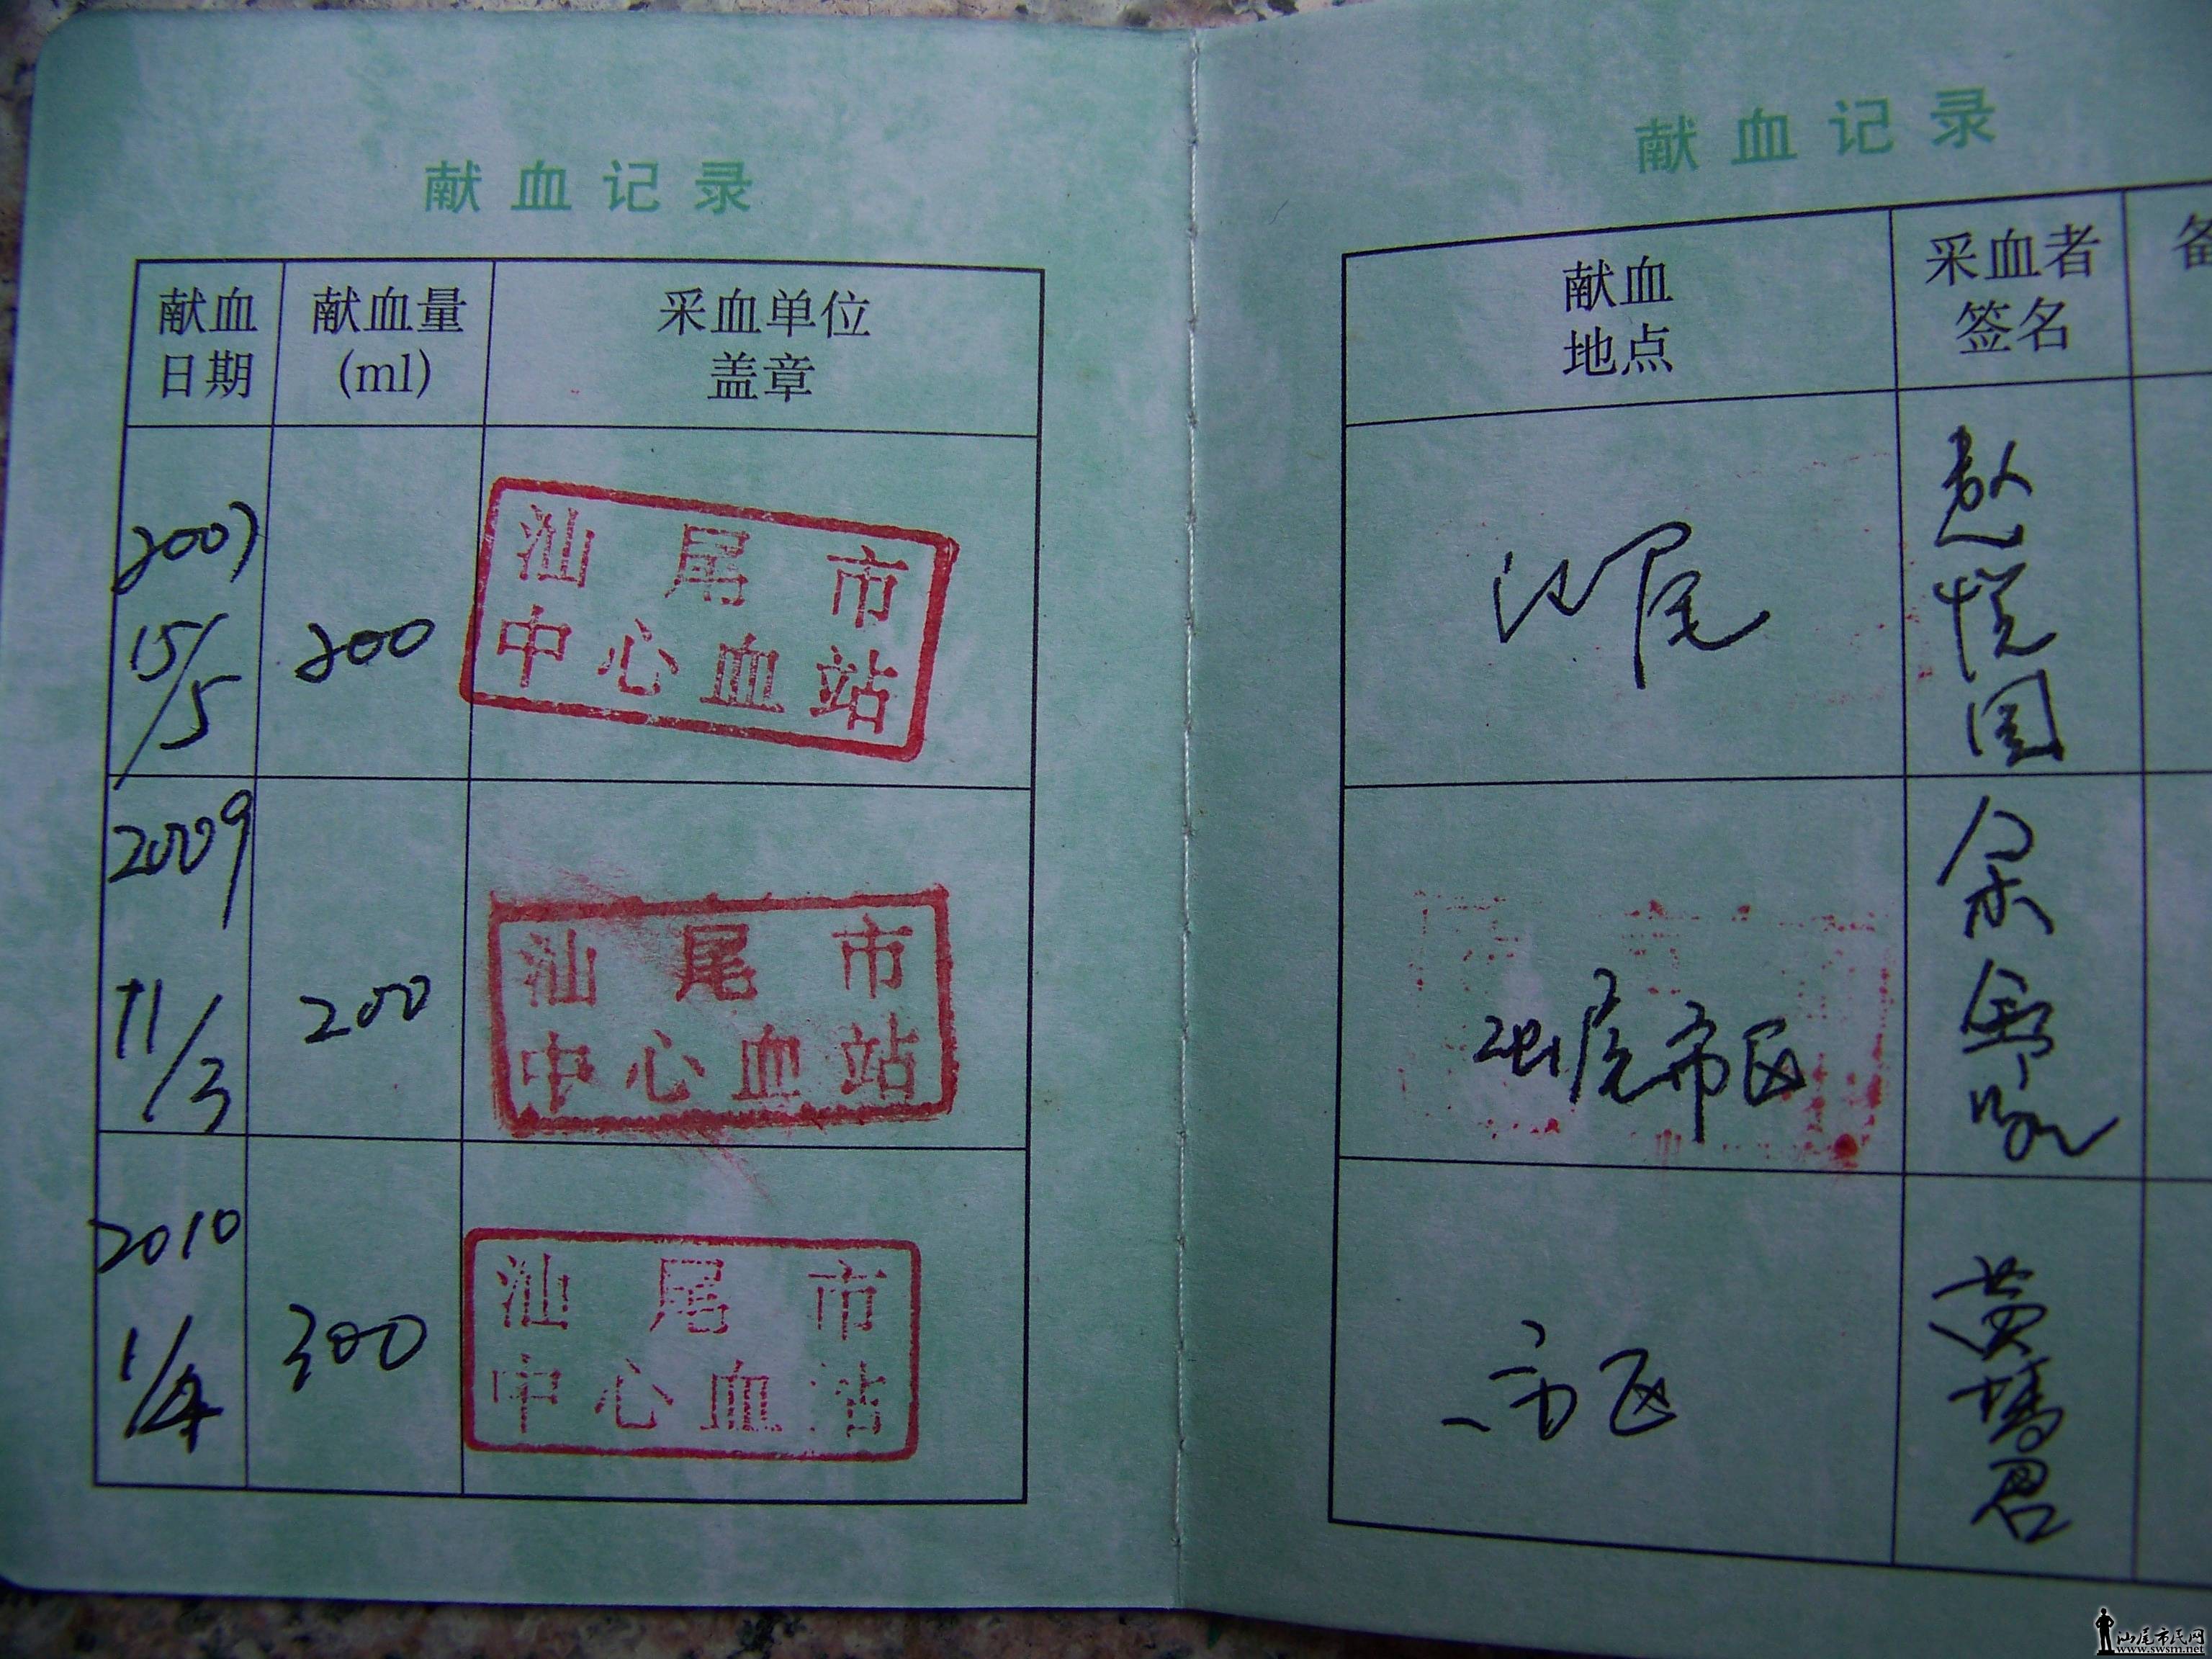 献血记录
献血
日期
献血量
(ml)
采血单位
盖章
2007
15/5
200
汕尾市
中心血站
2009
11/3
200
汕尾市
中心血站
2010
1/4
300
汕尾市
中心血站
献血记录
献血
地点
采血者
签名
备
汕尾
汕尾市区
市区
汕尾市民网
www.swsm.net